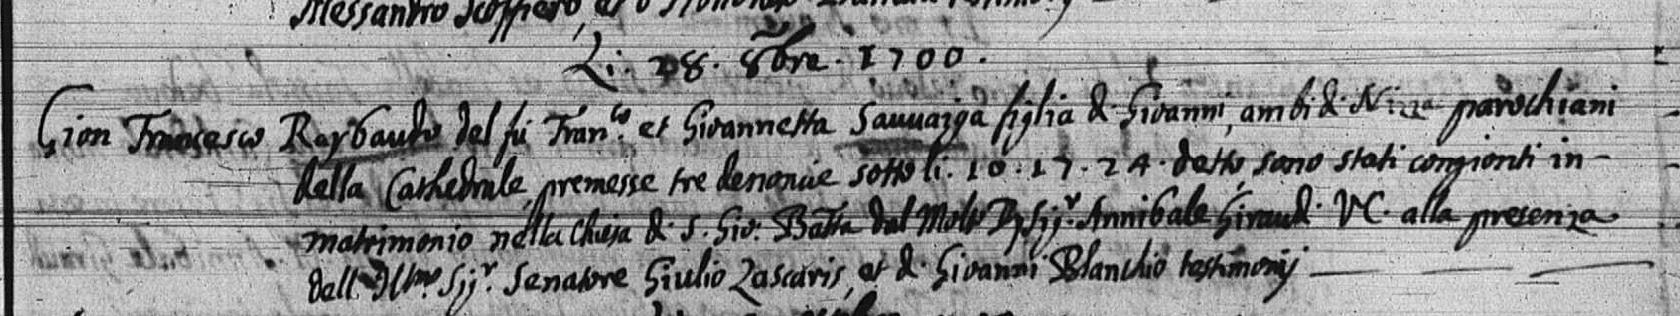 Alessandro Scoffiero, et
Li. 28. 8bre. 1700.
Gion Francesco Raybaudo del fù Fran.co et Giovannetta Sauuaiga figlia di Giovanni, ambi di Nizza parochiani
della Cathedrale, premesse tre denoncie sotto li. 10. 17. 24. detto sono stati congionti in-
matrimonio nella Chiesa di S. Gio: Batta dal Molto Sig.r Annibale Giraudi VC. alla presenza
dell Ill.mo Sig.r Senatore Giulio Lascaris, et di Giovanni Blanchio testimonij